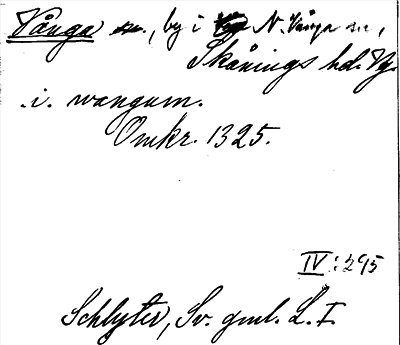 Vånga sn., by i N. Vånga sn.,
Skånings hd. Vg.
.i. wangum.
Omkr. 1325.
IV:295
Schlyter, Sv. gml. L. I.